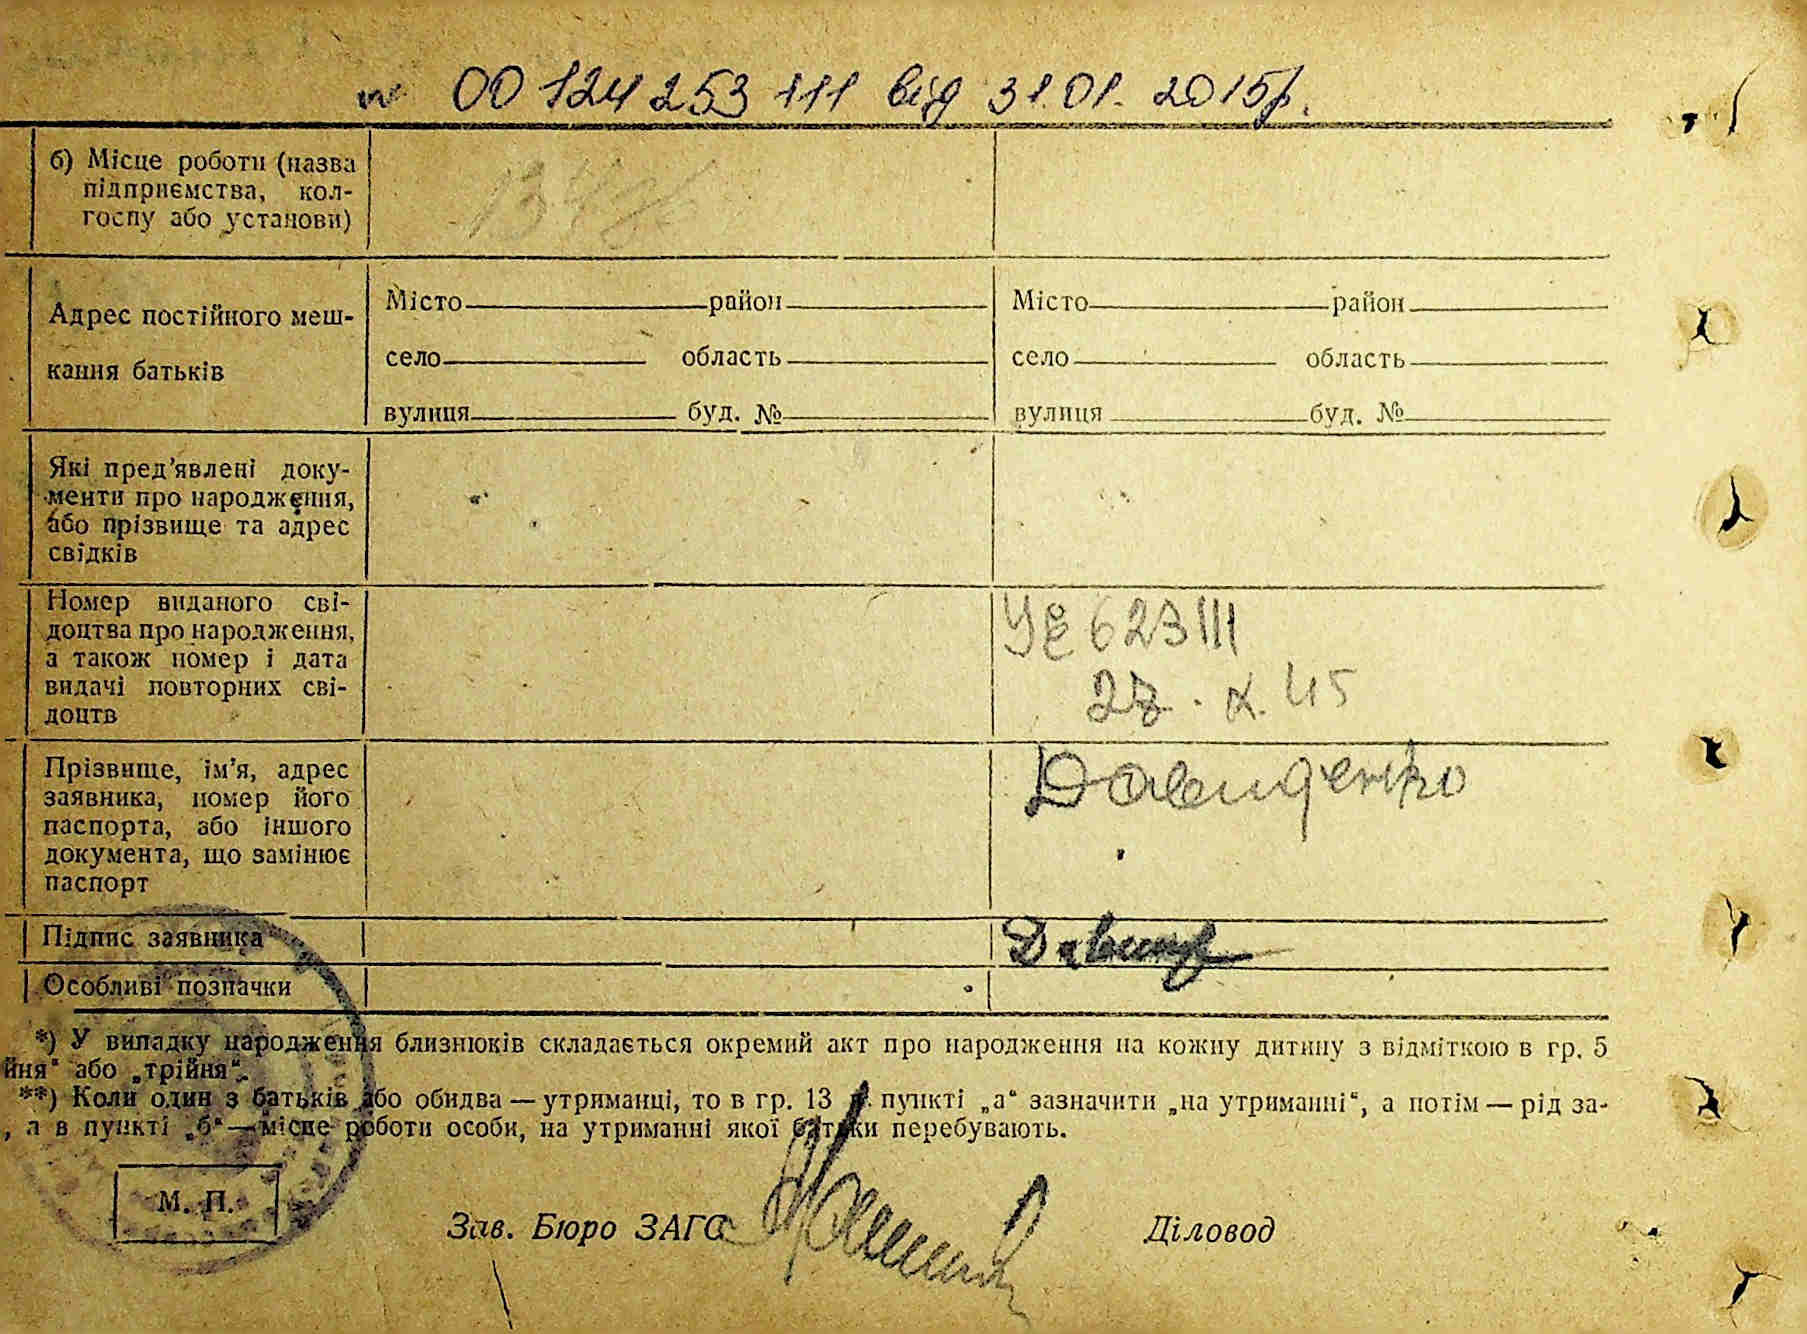 № 00124253111 від 31.01.2015р.
б) Місце роботи (назва
підприємства, кол-
госпу або установи)
Адрес постійного меш-
кання батьків
Місто район
село область
вулиця буд. №
Місто район
село область
вулиця буд. №
Які пред’явлені доку-
менти про народження,
або прізвище та адрес
свідків
Номер виданого сві-
доцтва про народження,
а також номер і дата
видачі повторних сві-
доцтв
623111
27. X. 45
Прізвище, ім’я, адрес
заявника, номер його
паспорта, або іншого
документа, що замінює
паспорт
Давиденко
Підпис заявника
Особливі позначки
*) У випадку народження близнюків складається окремий акт про народження на кожну дитину з відміткою в гр. 5
йня“ або „трійня“.
**) Коли один з батьків або обидва — утриманці, то в гр. 13 пункті „а“ зазначити „на утриманні“, а потім — рід за-
, а в пункті „б“ — місце роботи особи, на утриманні якої батьки перебувають.
М. П.
Зав. Бюро ЗАГС
Діловод